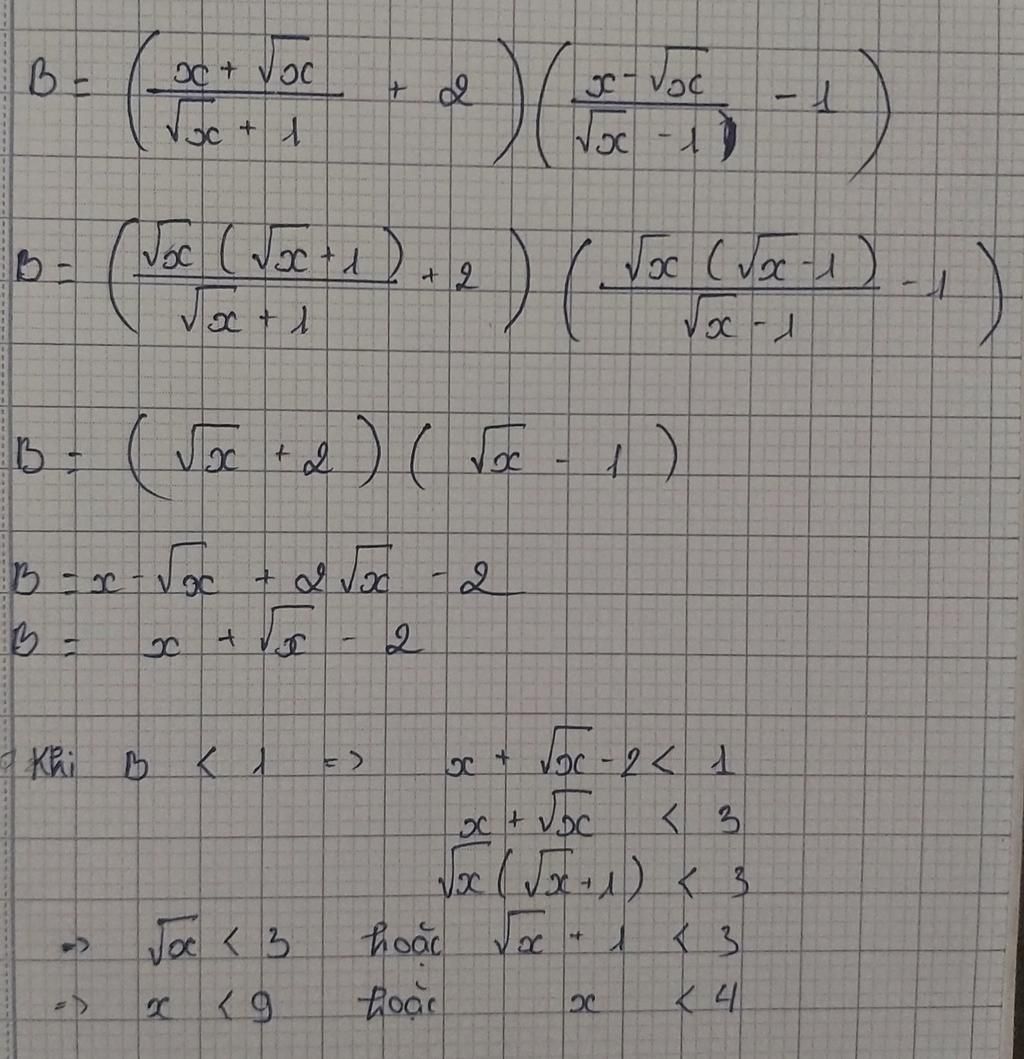 B = ((x + √x)/(√x + 1) + 2)((x - √x)/(√x - 1) - 1)
B = ((√x (√x + 1))/(√x + 1) + 2) ((√x (√x - 1))/(√x - 1) - 1)
B = (√x + 2) (√x - 1)
B = x - √x + 2√x - 2
B = x + √x - 2
Khi B < 1 => x + √x - 2 < 1
x + √x < 3
√x (√x + 1) < 3
=> √x < 3 hoặc √x + 1 < 3
=> x < 9 hoặc x < 4